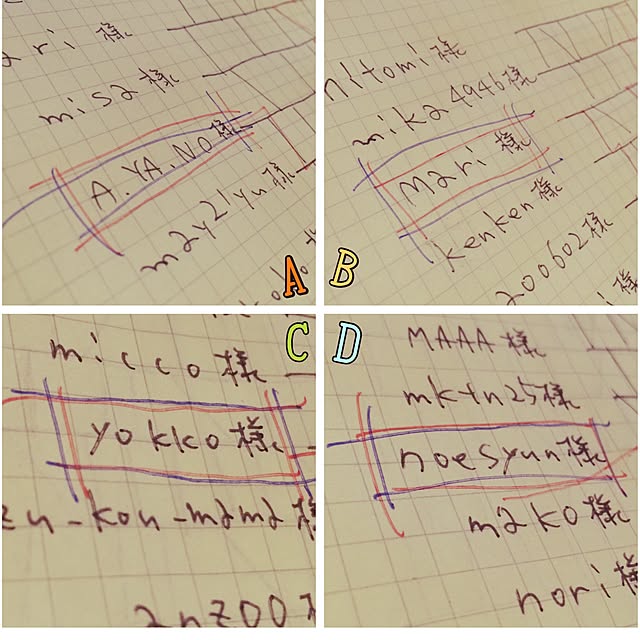 ari様
misa様
A.YA.NO様
may21yu様
A
hitomi様
mika4946様
mari様
kenken様
200602様
様
B
micco様
yokko様
zu-kou-mama様
anzoo
C
MAAA様
mktn25様
noesyun様
mako様
nori様
D